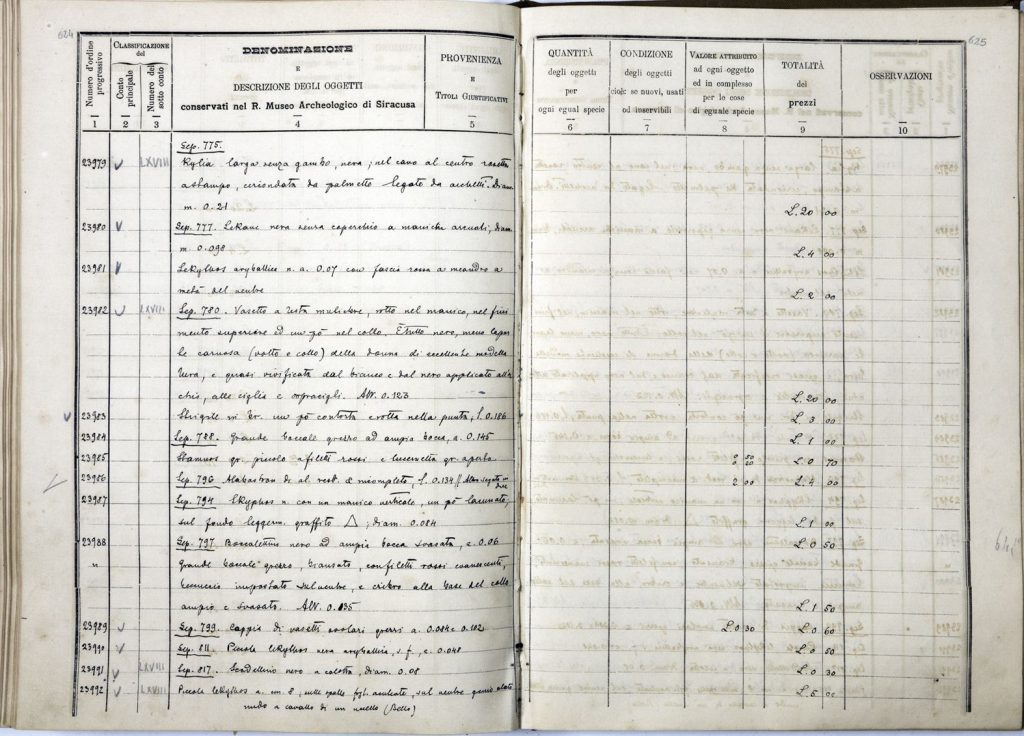 624
Numero d'ordine progressivo
CLASSIFICAZIONE del
Conto principale
Numero del sotto conto
DENOMINAZIONE
E
DESCRIZIONE DEGLI OGGETTI
conservati nel R. Museo Archeologico di Siracusa
PROVENIENZA
E
TITOLI GIUSTIFICATIVI
1 2 3 4 5
Sep. 775.
23979 LXVIII Kylix larga senza gambo, nera; nel cavo al centro rosetta
a stampo, circondata da palmette legate da archetti. Diam.
m. 0.21
23980 Sep. 777. Lekane nera senza coperchio a maniche arcuati, diam.
m. 0.098
23981 Lekythos aryballica n. a. 0.07 con fascia rossa a meandro a
metà del ventre
23982 LXVIII Sep. 780. Vasetto a testa muliebre, rotto nel manico, nel fini
mento superiore ed un pò nel collo. È tutto nero, meno
le carnosa (volto e collo) della donna di eccellente modella
tura, e quasi vivificata dal bianco e dal nero applicato
chio, alle ciglia e sopracigli. Alt. 0.123
23983 Strigile in br. un pò contorta e rotta nella punta; l. 0.186
23984 Sep. 788. Grande boccale grezzo ad ampia bocca, a. 0.145
23985 Stamnos gr. piccolo a filetti rossi e lucernetta gr. aperta
23986 Sep. 796 Alabastron di al. rest. e incompleto, l. 0.134
23987 Sep. 794 Skyphos n. con un manico verticale, un pò lacunato,
sul fondo leggerm. graffito △; diam. 0.084
23988 Sep. 797. Boccalettino nero ad ampia bocca svasata, a. 0.06
" Grande boccale grezzo, con filetti rossi evanescenti,
sul ventre, e alla base del collo
ampio e svasato. Alt. 0.135
23989 Sep. 799. Coppia di vasetti grezzi a. 0.084 e 0.102
23990 Sep. 811. Piccola lekythos nera aryballica, s. f., a. 0.048
23991 LXVIII Sep. 817. Scodellino nero a calotta, diam. 0.08
23992 LXVIII Piccola lekythos a. cm. 8, sulle spalle sul ventre genio alato
nudo a cavallo di un (Bello)
625
QUANTITÀ
degli oggetti
per
ogni egual specie
CONDIZIONE
degli oggetti
cioè: se nuovi, usati
od inservibili
VALORE ATTRIBUITO
ad ogni oggetto
ed in complesso
per le cose
di eguale specie
TOTALITÀ
dei
prezzi
OSSERVAZIONI
6 7 8 9 10
L. 20 00
L. 4 00
L. 2 00
L. 20 00
L. 3 00
L. 1 00
0 50
0 20 L. 0 70
2 00 L. 4 00
L. 1 00
L. 0 50
L. 1 50
L. 0 30 L. 0 60
L. 0 50
L. 0 30
L. 5 00